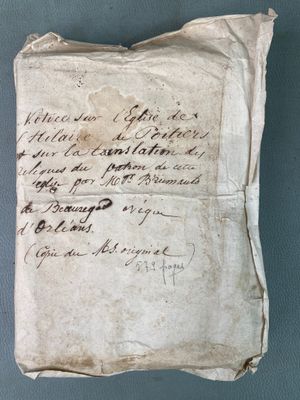 Notice sur l'Eglise de
St Hilaire de Poitiers
& sur la translation des
reliques du patron de cette
eglise par Mgr Brumauld
de Beauregard évêque
d'Orléans.
(Copie du MS. original)
pages